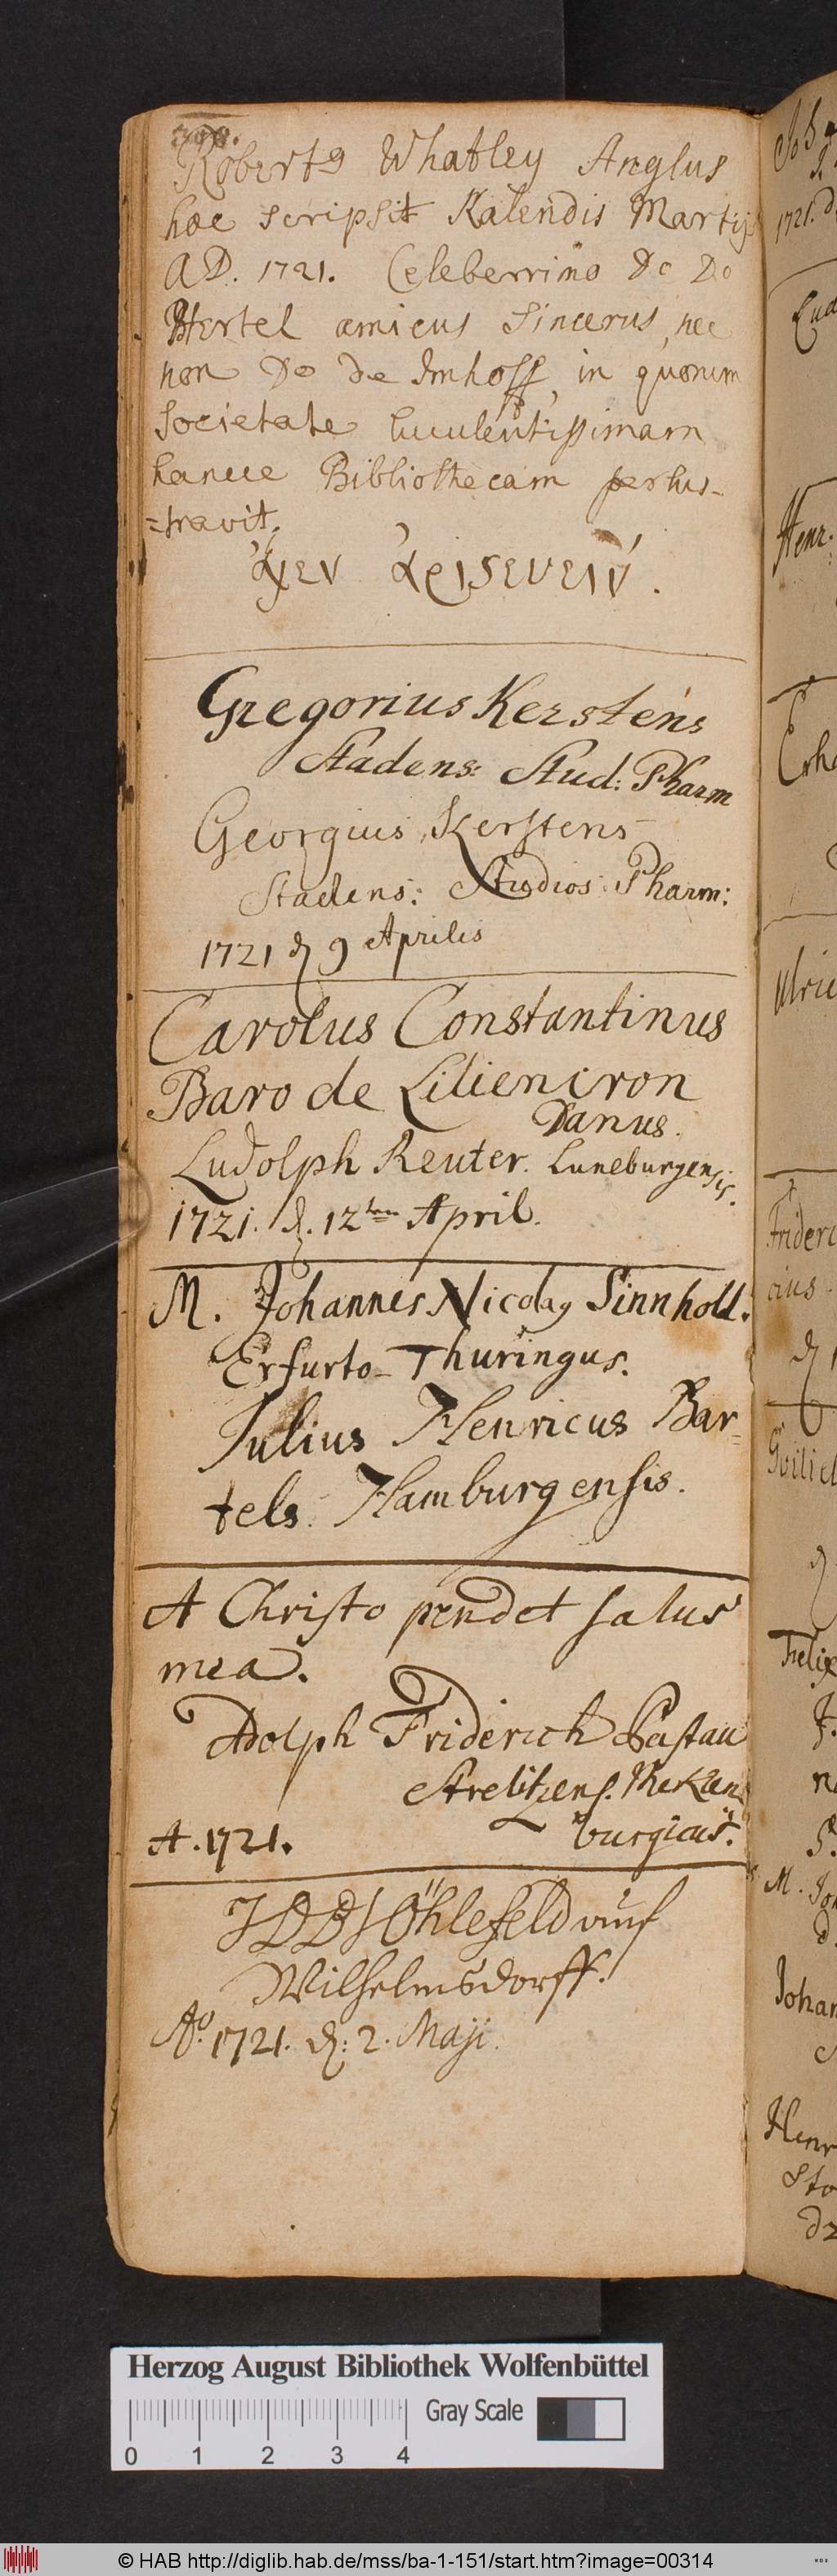 300.
Robertq Whatley Anglus
hæc scripsit Kalendis Martij
AD. 1721. Celeberrimo Do Do
Hertel amicus sincerus, nec
non Do de Imhoff, in quorum
societate luculentissimam
hance Bibliothecam perlus-
-travit.
ἀιεν ἀριστευειν.
Gregorius Kerstens
Stadens: Stud: Pharm
Georgius Kerstens
Stadens: Studios: Pharm:
1721 d 9 Aprilis
Carolus Constantinus
Baro de Liliencron
Danus.
Ludolph Reuter. Luneburgensis.
1721. d. 12ten April.
M. Johannes Nicolaq Sinnhold.
Erfurto-Thuringus.
Julius Henricus Bar-
tels Hamburgensis.
A Christo pendet salus
mea.
Adolph Friderich Pastau
Strelitzens. Meklen
burgicus.
A. 1721.
Öhlefeld auf
Wilhelmsdorff.
Ao. 1721. d: 2. Maji.
Herzog August Bibliothek Wolfenbüttel
Gray Scale
0 1 2 3 4
© HAB http://diglib.hab.de/mss/ba-1-151/start.htm?image=00314